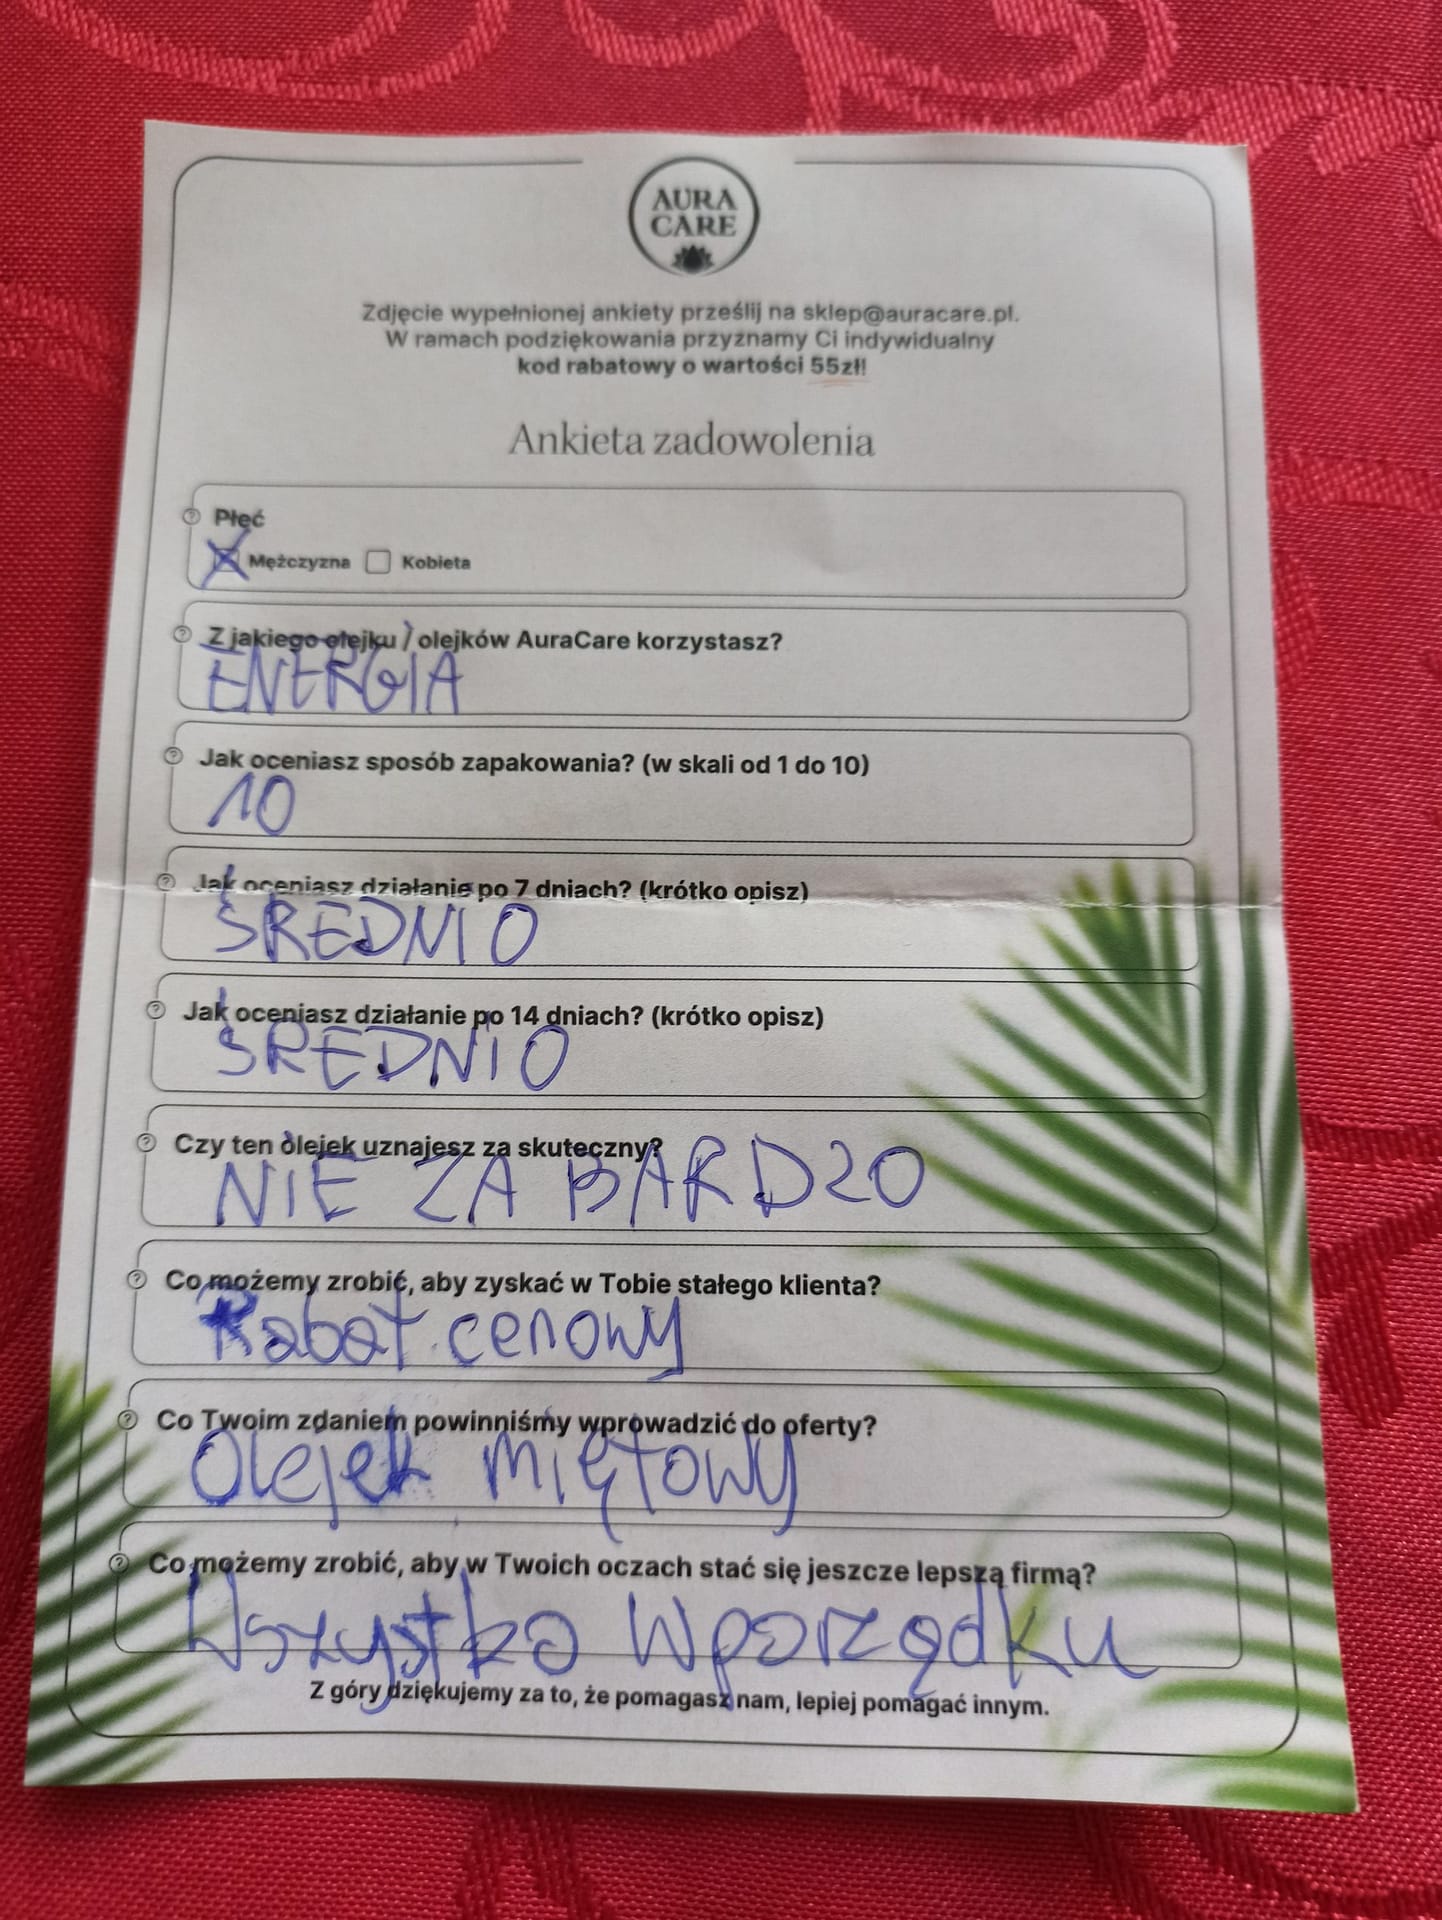 AURA
CARE
Zdjęcie wypełnionej ankiety prześlij na sklep@auracare.pl.
W ramach podziękowania przyznamy Ci indywidualny
kod rabatowy o wartości 55zł!
Ankieta zadowolenia
Płeć
Mężczyzna Kobieta
Z jakiego olejku / olejków AuraCare korzystasz?
ENERGIA
Jak oceniasz sposób zapakowania? (w skali od 1 do 10)
10
Jak oceniasz działanie po 7 dniach? (krótko opisz)
ŚREDNIO
Jak oceniasz działanie po 14 dniach? (krótko opisz)
ŚREDNIO
Czy ten olejek uznajesz za skuteczny?
NIE ZA BARDZO
Co możemy zrobić, aby zyskać w Tobie stałego klienta?
Rabat cenowy
Co Twoim zdaniem powinniśmy wprowadzić do oferty?
Olejek miętowy
Co możemy zrobić, aby w Twoich oczach stać się jeszcze lepszą firmą?
Wszystko wporządku
Z góry dziękujemy za to, że pomagasz nam, lepiej pomagać innym.